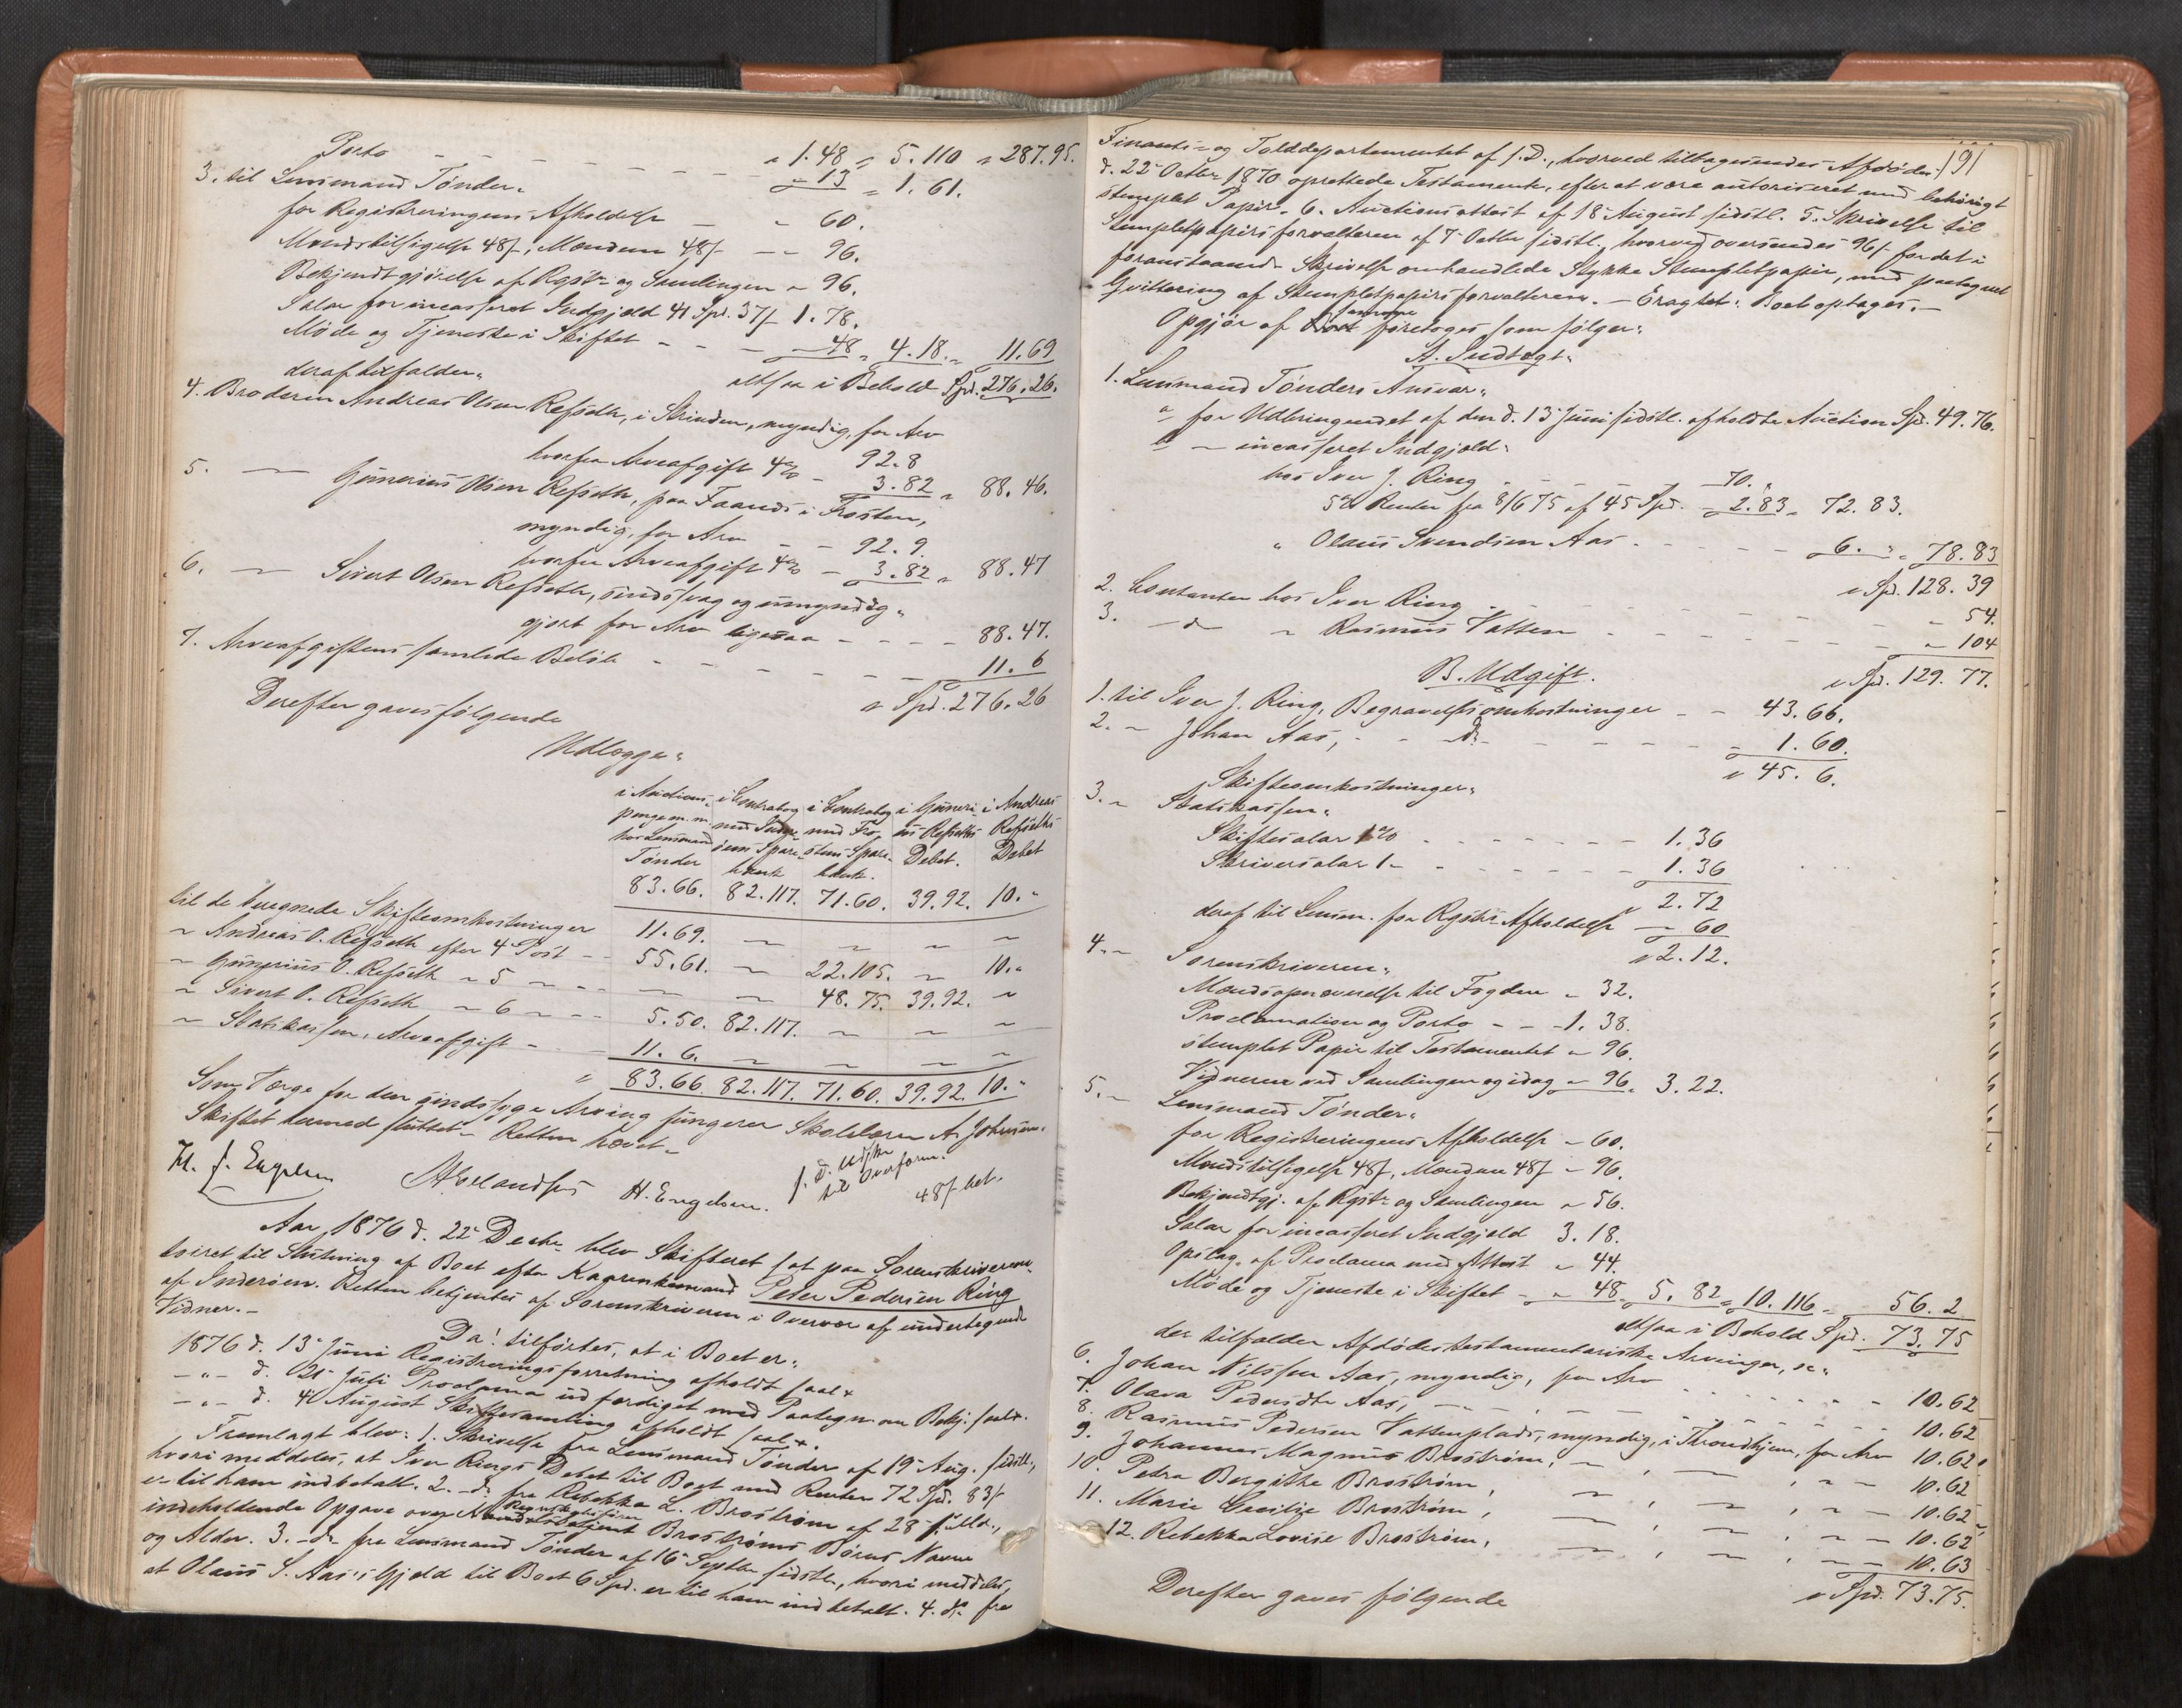 Porto - - - - - - - " 1.48 " 5.110 " 287.95.
3. til Lensmand Tønder: " 13 " 1.61.
for Registreringens Afholdelse - " 60.
Mændstilsigelse 48/-, Mændene 48/- - - 96.
Bekjendtgjørelse af Rgstr- og Samlingen " 96.
Salær for incasseret Indgjæld 41 Spd. 37/- 1.78.
Møde og Tjeneste i Skiftet - - - - 48 " 4.18. " 11.69
altsaa i Behold Spd. 276.26.
deraf tilfalder:
4. Broderen Andreas Olsen Refseth, i Strinden, myndig, for Arv 92.8
hvorfra Arveafgift 4% - 3.82 " 88.46.
5. — Gunerius Olsen Refseth, paa Faanes i Frosten,
myndig, for Arv - - 92.9.
hvorfra Arveafgift 4% - 3.82 " 88.47
6. — Sivert Olsen Refseth, sindssvag og umyndig-
gjort for Arv ligesaa - - - - 88.47.
7. Arveafgiftens samlede Beløb - - - - - - 11.6
" Spd. 276.26
Derefter gaves følgende
Udlægge:
i Auctions- i Contrabog i Contrabog i Guneri- i Andreas
penge m. m. med Inder- med Fro- us Refseths Refseths
hos Lensmand øens Spare- stens Spare- Debet. Debet
Tønder bank bank.
83.66. 82.117. 71.60. 39.92. 10. "
til de beregnede Skifteomkostninger 11.69. ~ ~ ~ ~
" Andreas O. Refseth efter 4 Post - - 55.61. ~ 22.105. ~ 10. "
" Gunerius O. Refseth " 5 ~ - - ~ ~ 48.75. 39.92. "
" Sivert O. Refseth " 6 ~ - - 5.50. 82.117. ~ ~ ~
" Statskassen, Arveafgift - - - 11.6. ~ ~ ~ ~
" 83.66. 82.117. 71.60. 39.92. 10. "
Som Værge for den sindssyge Arving fungerer Skolelærer A. Johnsen.
Skiftet hermed sluttet - Retten hævet. -
H. Engelsen.
48/- bet.
Aar 1876 d. 22de Decbr blev Skifteret sat paa Sorenskriverens
toiret til Slutning af Boet efter Kaarenkemand Peter Pedersen Ring
af Inderøen. Retten betjentes af Sorenskriveren i Overvær af undertegnede
Vidner. -
Da! tilførtes, at i Boet er:
1876 d. 13de Juni Registreringsforretning afholdt saal+
- " - d. 21de Juli Proclama udfærdiget med Paategn. om Bekj. saal+.
- " - d. 4de August Skiftesamling afholdt saal+.
Fremlagt blev: 1. Skrivelse fra Lensmand Tønder af 19de Aug. sidstl.,
hvori meddeles, at Iver Rings Debet til Boet med Renter 72 Spd. 83/-
er til ham indbetalt. 2. -do- fra Rebekka L. Brostrøm af 28de s. Md.,
indeholdende Opgave over Brostrøms Børns Navne
og Alder. 3. -do- fra Lensmand Tønder af 16de Septbr sidstl., hvori meddeles,
at Olaus S. Aas's Gjæld til Boet 6 Spd. er til ham indbetalt. 4. do. fra
191
Finants- og Tolddepartementet af s.D., hvorved tilbagesendes Afdødes
d. 22de Octbr 1870 oprettede Testamente, efter at være autoriseret med behørigt
stemplet Papir. 6. Auctionsattest af 18de August sidstl. 5. Skrivelse til
Stempletpapirsforvalteren af 7de Octbr sidstl., hvorved oversendes 96/- for det i
foranstaaende Skrivelse omhandlede Stykke Stempletpapir, med paategnet
Qvittering af Stempletpapirsforvalteren. - Eragtet: Boet optages. -
Opgjør af Boet foretoges som følger:
A. Indtægt:
1. Lensmand Tønders Ansvar:
a for Udbringendet af den d. 13de Juni sidstl. afholdte Auction Spd. 49.76.
b - incasseret Indgjæld:
hos Iver J. Ring - - - - - 70. "
5% Renter fra 8/6 75 af 45 Spd. - 2.83 " 72.83.
" Olaus Svendsen Aas - - - - - 6. " " 78.83
" Spd. 128.39
2. Contanter hos Iver Ring - - - - - - - 54.
3. - do " Rasmus Vatten - - - - - - - 104
" Spd. 129.77.
B. Udgift.
1. til Iver J. Ring, Begravelsesomkostninger - - 43.66.
2. " Johan Aas, - - do - - - - - - 1.60.
" 45.6.
Skifteomkostninger:
3. " Statskassen:
Skiftesalær 1% - - - - - - - 1.36
Skriversalær 1 - - - - - - - - 1.36
" 2.72
deraf til Lensm. for Rgstr Afholdelse - " 60
" 2.12.
4. " Sorenskriveren:
Mændsopnævnelse til Fogden " 32.
Proclamation og Porto - - - 1.38.
stemplet Papir til Testamentet " 96.
Vidnerne ved Samlingen og idag " 96 " 3.22.
5. " Lensmand Tønder:
for Registreringens Afholdelse - 60.
Mændstilsigelse 48/-, Mændene 48/- " 96.
Bekjendtgj. af Rgstr- og Samlingen " 56.
Salær for incasseret Indgjæld 3.18.
Opslag. af Proclama med Attest " 44.
Møde og Tjeneste i Skiftet - - " 48 " 5.82 " 10.116 " 56.2
altsaa i Behold Spd. 73.75
der tilfalder Afdødes testamentariske Arvinger, sc.:
6. Johan Nilssen Aas, myndig, for Arv - - - - - - 10.62
7. Olava Pedersdtr Aas, - - - - - - - - 10.62
8. Rasmus Pedersen Vattenplads, myndig, i Throndhjem, for Arv 10.62
9. Johannes Magnus Brostrøm, ~ , ~ , " ~ 10.62
10. Petra Bergithe Brostrøm, ~ , ~ , " ~ 10.62
11. Marie Cecilie Brostrøm, ~ , ~ , " ~ 10.62
12. Rebekka Lovise Brostrøm, ~ , ~ , " ~ 10.63
" Spd. 73.75.
Derefter gaves følgende